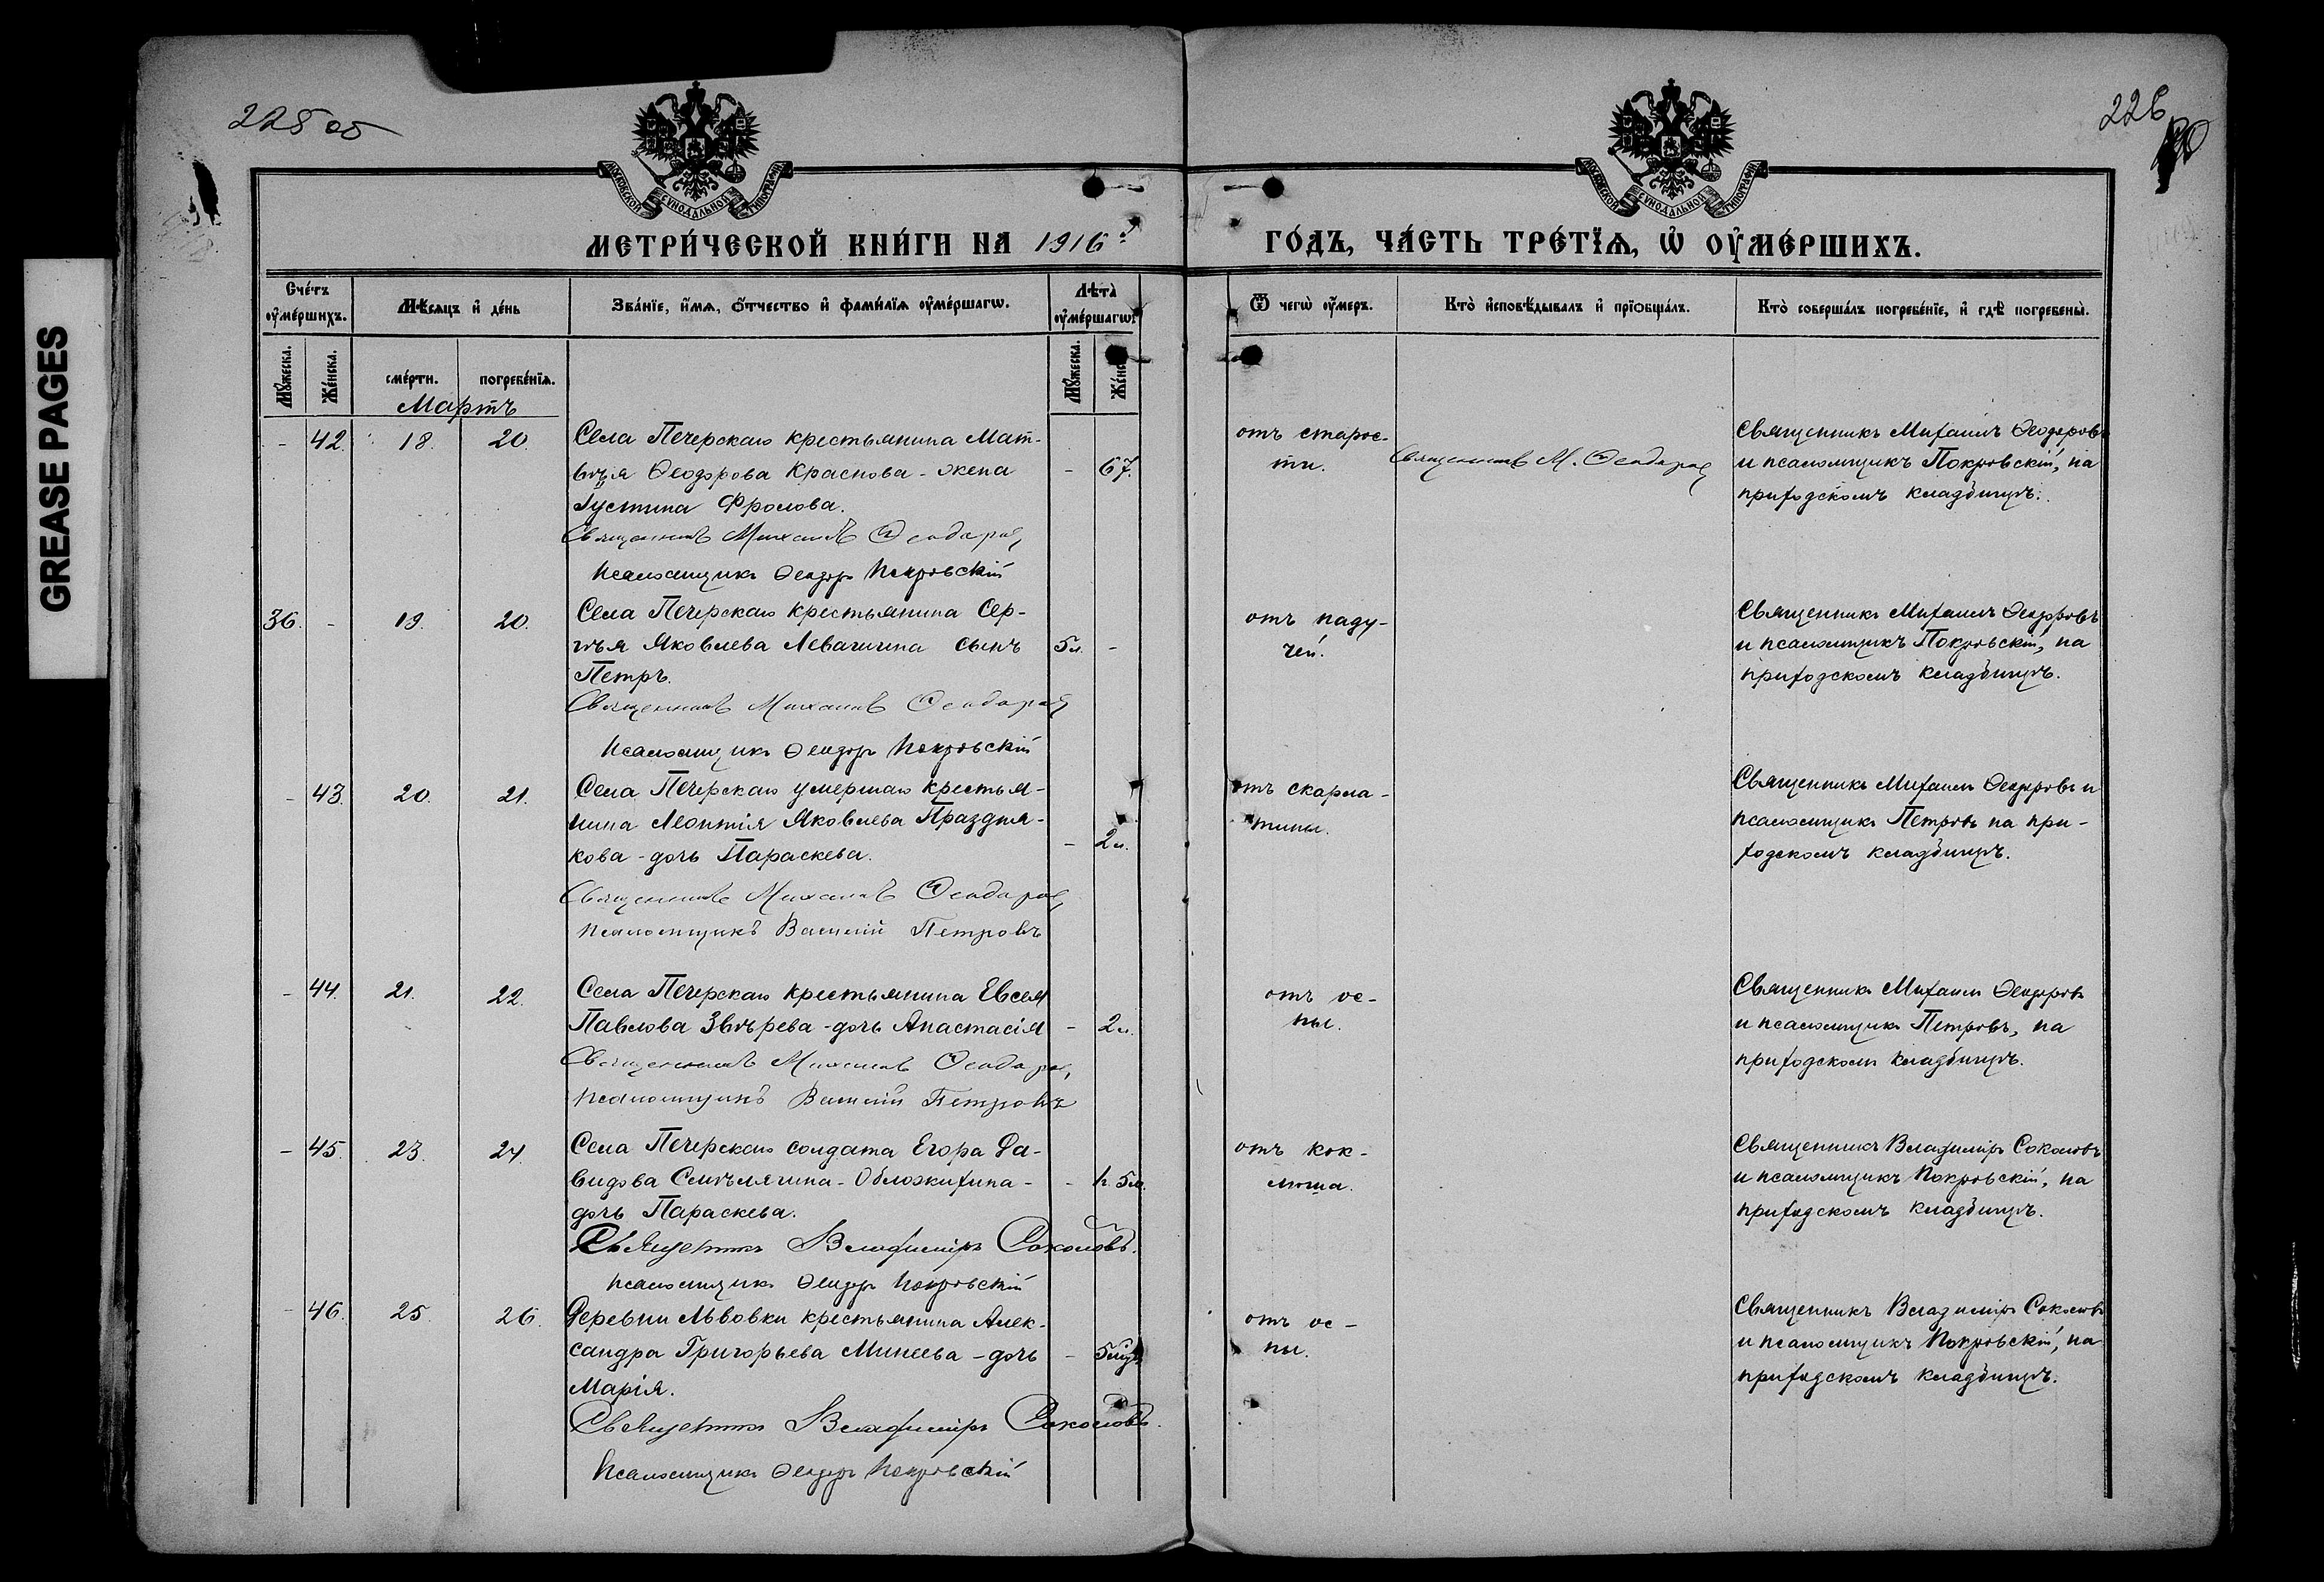 GREASE PAGES
225 об
226
МОСКОВСКОЙ СУНОДАЛЬНОЙ ТИПОГРАФІИ
МОСКОВСКОЙ СУНОДАЛЬНОЙ ТИПОГРАФІИ
МЕТРИ́ЧЕСКОЙ КНИ́ГИ НА 1916 г.
ГО́ДЪ, ЧА́СТЬ ТРЕ́ТЇѦ, Ѡ҆ ОУ҆МЕ́РШИХЪ.
Сче́тъ оу҆ме́ршихъ.
Мѣ́сяцъ и҆ де́нь
Зва́нїе, и҆́мѧ, ѻ҆́тчество и҆ фами́лїѧ оу҆ме́ршагѡ.
Лѣ́та оу҆ме́ршагѡ.
Ѿ чегѡ̀ оу҆́меръ.
Кто̀ и҆сповѣ́дывалъ и҆ прїѻбща́лъ.
Кто̀ соверша́лъ погребе́нїе, и҆ гдѣ̀ погребены̀.
Мꙋ́жеска.
Же́нска.
сме́рти.
погребе́нїѧ.
Мꙋ́жеска.
Же́нска.
Мартъ
- 42. 18. 20. Села Печерскаго крестьянина Мат-
вѣя Ѳеодорова Краснова - жена - 67.
Іустина Фролова.
Священникъ Михаилъ Ѳеодоровъ
Псаломщикъ Ѳеодоръ Покровскій
отъ старос-
ти.
Священникъ М. Ѳеодоровъ
Священникъ Михаилъ Ѳеодоровъ
и псаломщикъ Покровскій, на
приходскомъ кладбищѣ.
36. - 19. 20. Села Печерскаго крестьянина Сер-
гѣя Яковлева Левагигина сынъ 5 л. -
Петръ.
Священникъ Михаилъ Ѳеодоровъ
Псаломщикъ Ѳеодоръ Покровскій
отъ паду-
чей.
Священникъ Михаилъ Ѳеодоровъ
и псаломщикъ Покровскій, на
приходскомъ кладбищѣ.
- 43. 20. 21. Села Печерскаго умершаго крестья-
нина Леонтія Яковлева Праздня-
кова - дочь Параскева. - 2 л.
Священникъ Михаилъ Ѳеодоровъ
Псаломщикъ Василій Петровъ
отъ скарла-
тины.
Священникъ Михаилъ Ѳеодоровъ и
псаломщикъ Петровъ на при-
ходскомъ кладбищѣ.
- 44. 21. 22. Села Печерскаго крестьянина Евсея
Павлова Звѣрева - дочь Анастасія - 2 л.
Священникъ Михаилъ Ѳеодоровъ
Псаломщикъ Василій Петровъ
отъ ос-
пы.
Священникъ Михаилъ Ѳеодоровъ
и псаломщикъ Петровъ, на
приходскомъ кладбищѣ.
- 45. 23. 24. Села Печерскаго солдата Егора Да-
видова Смѣлягина - Обложихина -
дочь Параскева.
Священникъ Владиміръ Соколовъ.
Псаломщикъ Ѳеодоръ Покровскій
отъ кок-
люша.
Священникъ Владиміръ Соколовъ
и псаломщикъ Покровскій, на
приходскомъ кладбищѣ.
- 46. 25. 26. Деревни Львовки крестьянина Алек-
сандра Григорьева Минеева - дочь -
Марія.
Священникъ Владиміръ Соколовъ.
Псаломщикъ Ѳеодоръ Покровскій
отъ ос-
пы.
Священникъ Владиміръ Соколовъ
и псаломщикъ Покровскій, на
приходскомъ кладбищѣ.